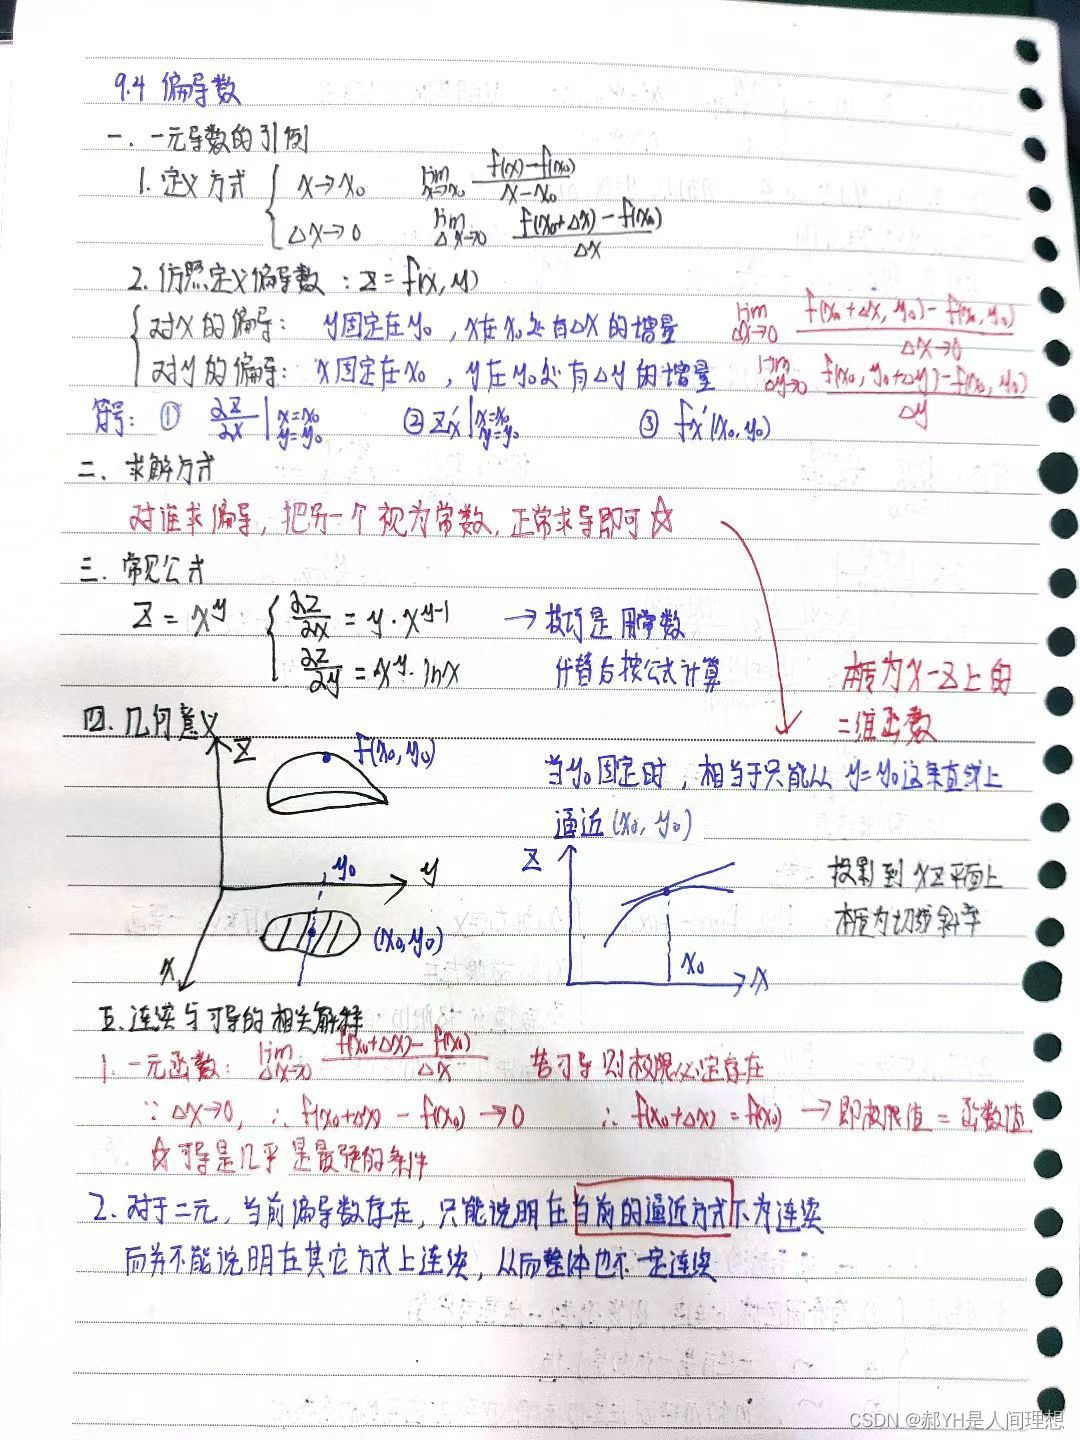 9.4 偏导数
一. 一元导数的引例
1. 定义方式 { x→x₀ lim x→x₀ f(x)-f(x₀) / x-x₀
Δx→0 lim Δx→0 f(x₀+Δx)-f(x₀) / Δx
2. 仿照定义偏导数：z=f(x,y)
{ 对x的偏导： y固定在y₀，x在x₀处有Δx的增量 lim Δx→0 f(x₀+Δx,y₀)-f(x₀,y₀) / Δx→0
对y的偏导：x固定在x₀，y在y₀处有Δy的增量 lim Δy→0 f(x₀,y₀+Δy)-f(x₀,y₀) / Δy
符号：① ∂z/∂x | x=x₀ y=y₀ ② z'x | x=x₀ y=y₀ ③ fx'(x₀,y₀)
二. 求解方式
对谁求偏导，把另一个视为常数，正常求导即可☆
三. 常见公式
z=x^y： { ∂z/∂x = y·x^(y-1) → 技巧是用常数
∂z/∂y = x^y·lnx 代替后按公式计算
本质为x-z上的
二维函数
四. 几何意义
z f(x₀,y₀)
当y₀固定时，相当于只能从y=y₀这条直线上
逼近(x₀,y₀)
y₀ y
(x₀,y₀)
x
z
x₀ x
投影到xz平面上
本质为切线斜率
五. 连续与可导的相关解释
1. 一元函数：lim Δx→0 f(x₀+Δx)-f(x₀) / Δx 若可导则极限必定存在
∵Δx→0，∴f(x₀+Δx)-f(x₀)→0 ∴f(x₀+Δx)=f(x₀) → 即极限值=函数值
☆可导是几乎是最强的条件
2. 对于二元，当前偏导数存在，只能说明在当前的逼近方式下为连续
而并不能说明在其它方式上连续，从而整体也不一定连续
CSDN @郝YH是人间理想